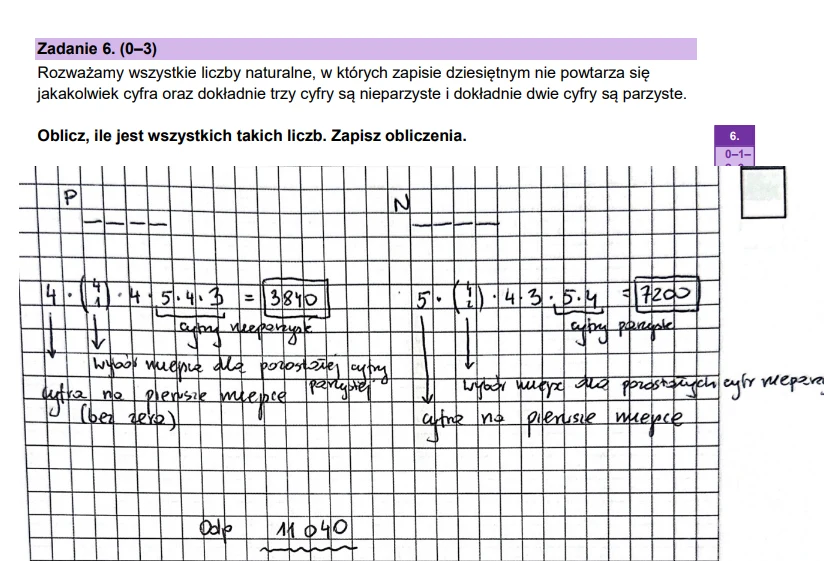 Zadanie 6. (0–3)
Rozważamy wszystkie liczby naturalne, w których zapisie dziesiętnym nie powtarza się
jakakolwiek cyfra oraz dokładnie trzy cyfry są nieparzyste i dokładnie dwie cyfry są parzyste.
Oblicz, ile jest wszystkich takich liczb. Zapisz obliczenia.
6.
0–1–
P _ _ _ _
4 · (4 1) · 4 · 5 · 4 · 3 = 3840
cyfry nieparzyste
wybór miejsca dla pozostałej cyfry
parzystej
cyfra na pierwsze miejsce
(bez zera)
N _ _ _ _
5 · (4 2) · 4 · 3 · 5 · 4 = 7200
cyfry parzyste
wybór miejsc dla pozostałych cyfr
cyfra na pierwsze miejsce
Odp 11 040